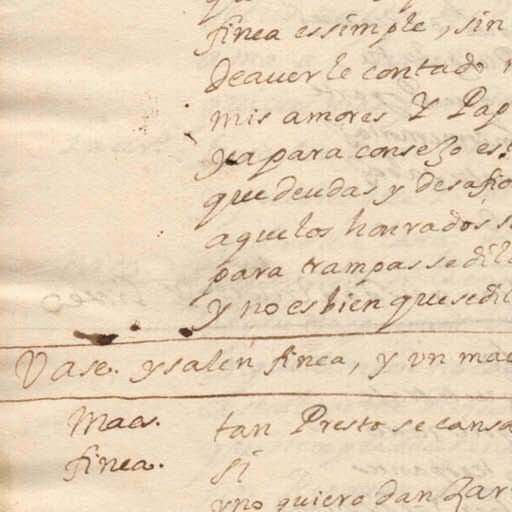 finea es simple, sin
de auerle contado
mis amores y Pap
ya para consejo es
que deudas y desafio
aquelos honrados s
para trampas se dil
y no es bien que se dil
Vase. y salen finea, y vn mae
Maes. tan Presto se cansa
finea. si
y no quiero danzar